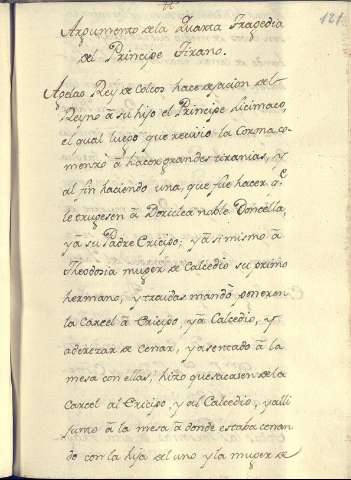 121
Argumento de la Quarta Tragedia
del Principe Tirano.
Agelao Rey de Colcos hace dejacion del
Reyno â su hijo el Principe Licimaco,
el qual luego que recivio la Corona, co-
menzò â hacer grandes tiranias, y
al fin haciendo una, que fue hacer q.e
le trugesen â Doriclea noble Doncella,
y â su Padre Ericipo; y â si mismo â
Theodosia muger de Calcedio su primo
hermano, y traidas mandò poner en
la Carcel â Ericipo y â Calcedio, y
aderezar de cenar, y asentado â la
mesa con ellas, hizo que sacasen de la
Carcel al Ericipo, y al Calcedio, y alli
junto â la mesa â donde estaba cenan
do con la hija del uno y la muger de